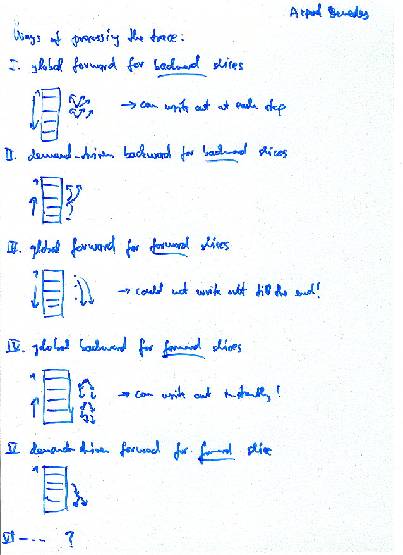 Arpad Beszedes
Ways of processing the trace:
I. global forward for backward slices
→ can write out at each step
II. demand-driven backward for backward slices
III. global forward for forward slices
→ could not write out till the end!
IV. global backward for forward slices
→ can write out instantly!
V. demand-driven forward for forward slice
VI --- ?